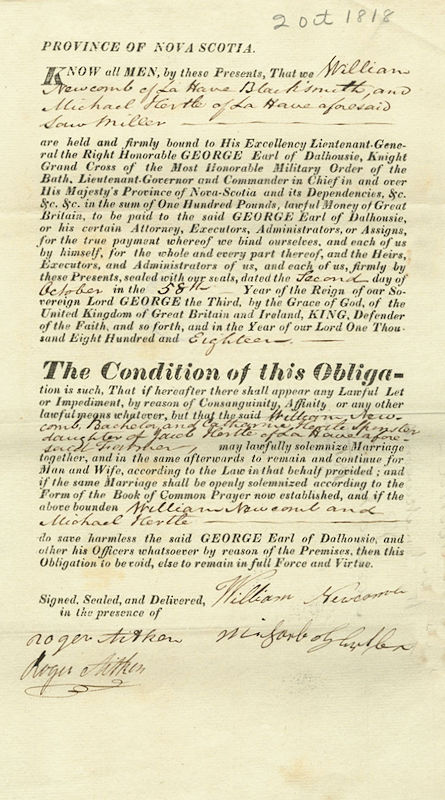 2 Oct 1818
PROVINCE OF NOVA SCOTIA.
KNOW all MEN, by these Presents, That we William
Newcomb of La Have Blacksmith, and
Michael Hertle of La Have aforesaid
Saw Miller
are held and firmly bound to His Excellency Lieutenant-Gene-
ral the Right Honorable GEORGE Earl of Dalhousie, Knight
Grand Cross of the Most Honorable Military Order of the
Bath, Lieutenant-Governor and Commander in Chief in and over
His Majesty's Province of Nova-Scotia and its Dependencies, &c.
&c. &c. in the sum of One Hundred Pounds, lawful Money of Great
Britain, to be paid to the said GEORGE Earl of Dalhousie,
or his certain Attorney, Executors, Administrators, or Assigns,
for the true payment whereof we bind ourselves, and each of us
by himself, for the whole and every part thereof, and the Heirs,
Executors, and Administrators of us, and each of us, firmly by
these Presents, sealed with our seals, dated the Second day of
October in the 58th Year of the Reign of our So-
vereign Lord GEORGE the Third, by the Grace of God, of the
United Kingdom of Great Britain and Ireland, KING, Defender
of the Faith, and so forth, and in the Year of our Lord One Thou-
sand Eight Hundred and Eighteen.
The Condition of this Obliga-
tion is such, That if hereafter there shall appear any Lawful Let
or Impediment, by reason of Consanguinity, Affinity or any other
lawful means whatever, but that the said William New-
comb, Bachelor, and Catharine Hertle Spinster
daughter of Jacob Hertle of La Have afore-
said may lawfully solemnize Marriage
together, and in the same afterwards to remain and continue for
Man and Wife, according to the Law in that behalf provided; and
if the same Marriage shall be openly solemnized according to the
Form of the Book of Common Prayer now established, and if the
above bounden William Newcomb and
Michael Hertle
do save harmless the said GEORGE Earl of Dalhousie, and
other his Officers whatsoever by reason of the Premises, then this
Obligation to be void, else to remain in full Force and Virtue.
Signed, Sealed, and Delivered, William Newcomb
in the presence of
Roger Aitken
Roger Aitken